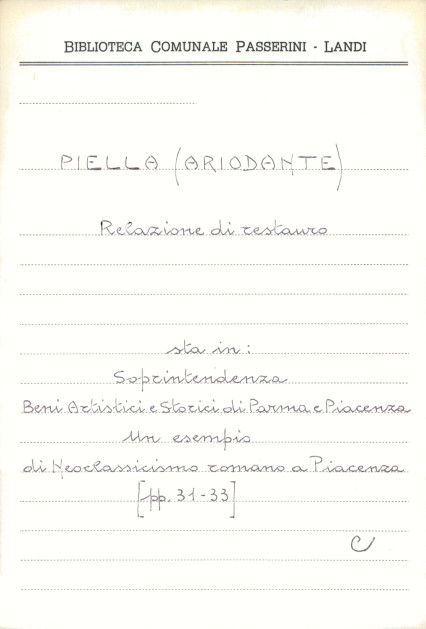 BIBLIOTECA COMUNALE PASSERINI - LANDI
PIELLA (ARIODANTE)
Relazione di restauro
sta in:
Soprintendenza
Beni Artistici e Storici di Parma e Piacenza
Un esempio
di Neoclassicismo romano a Piacenza
[pp. 31-33]
C